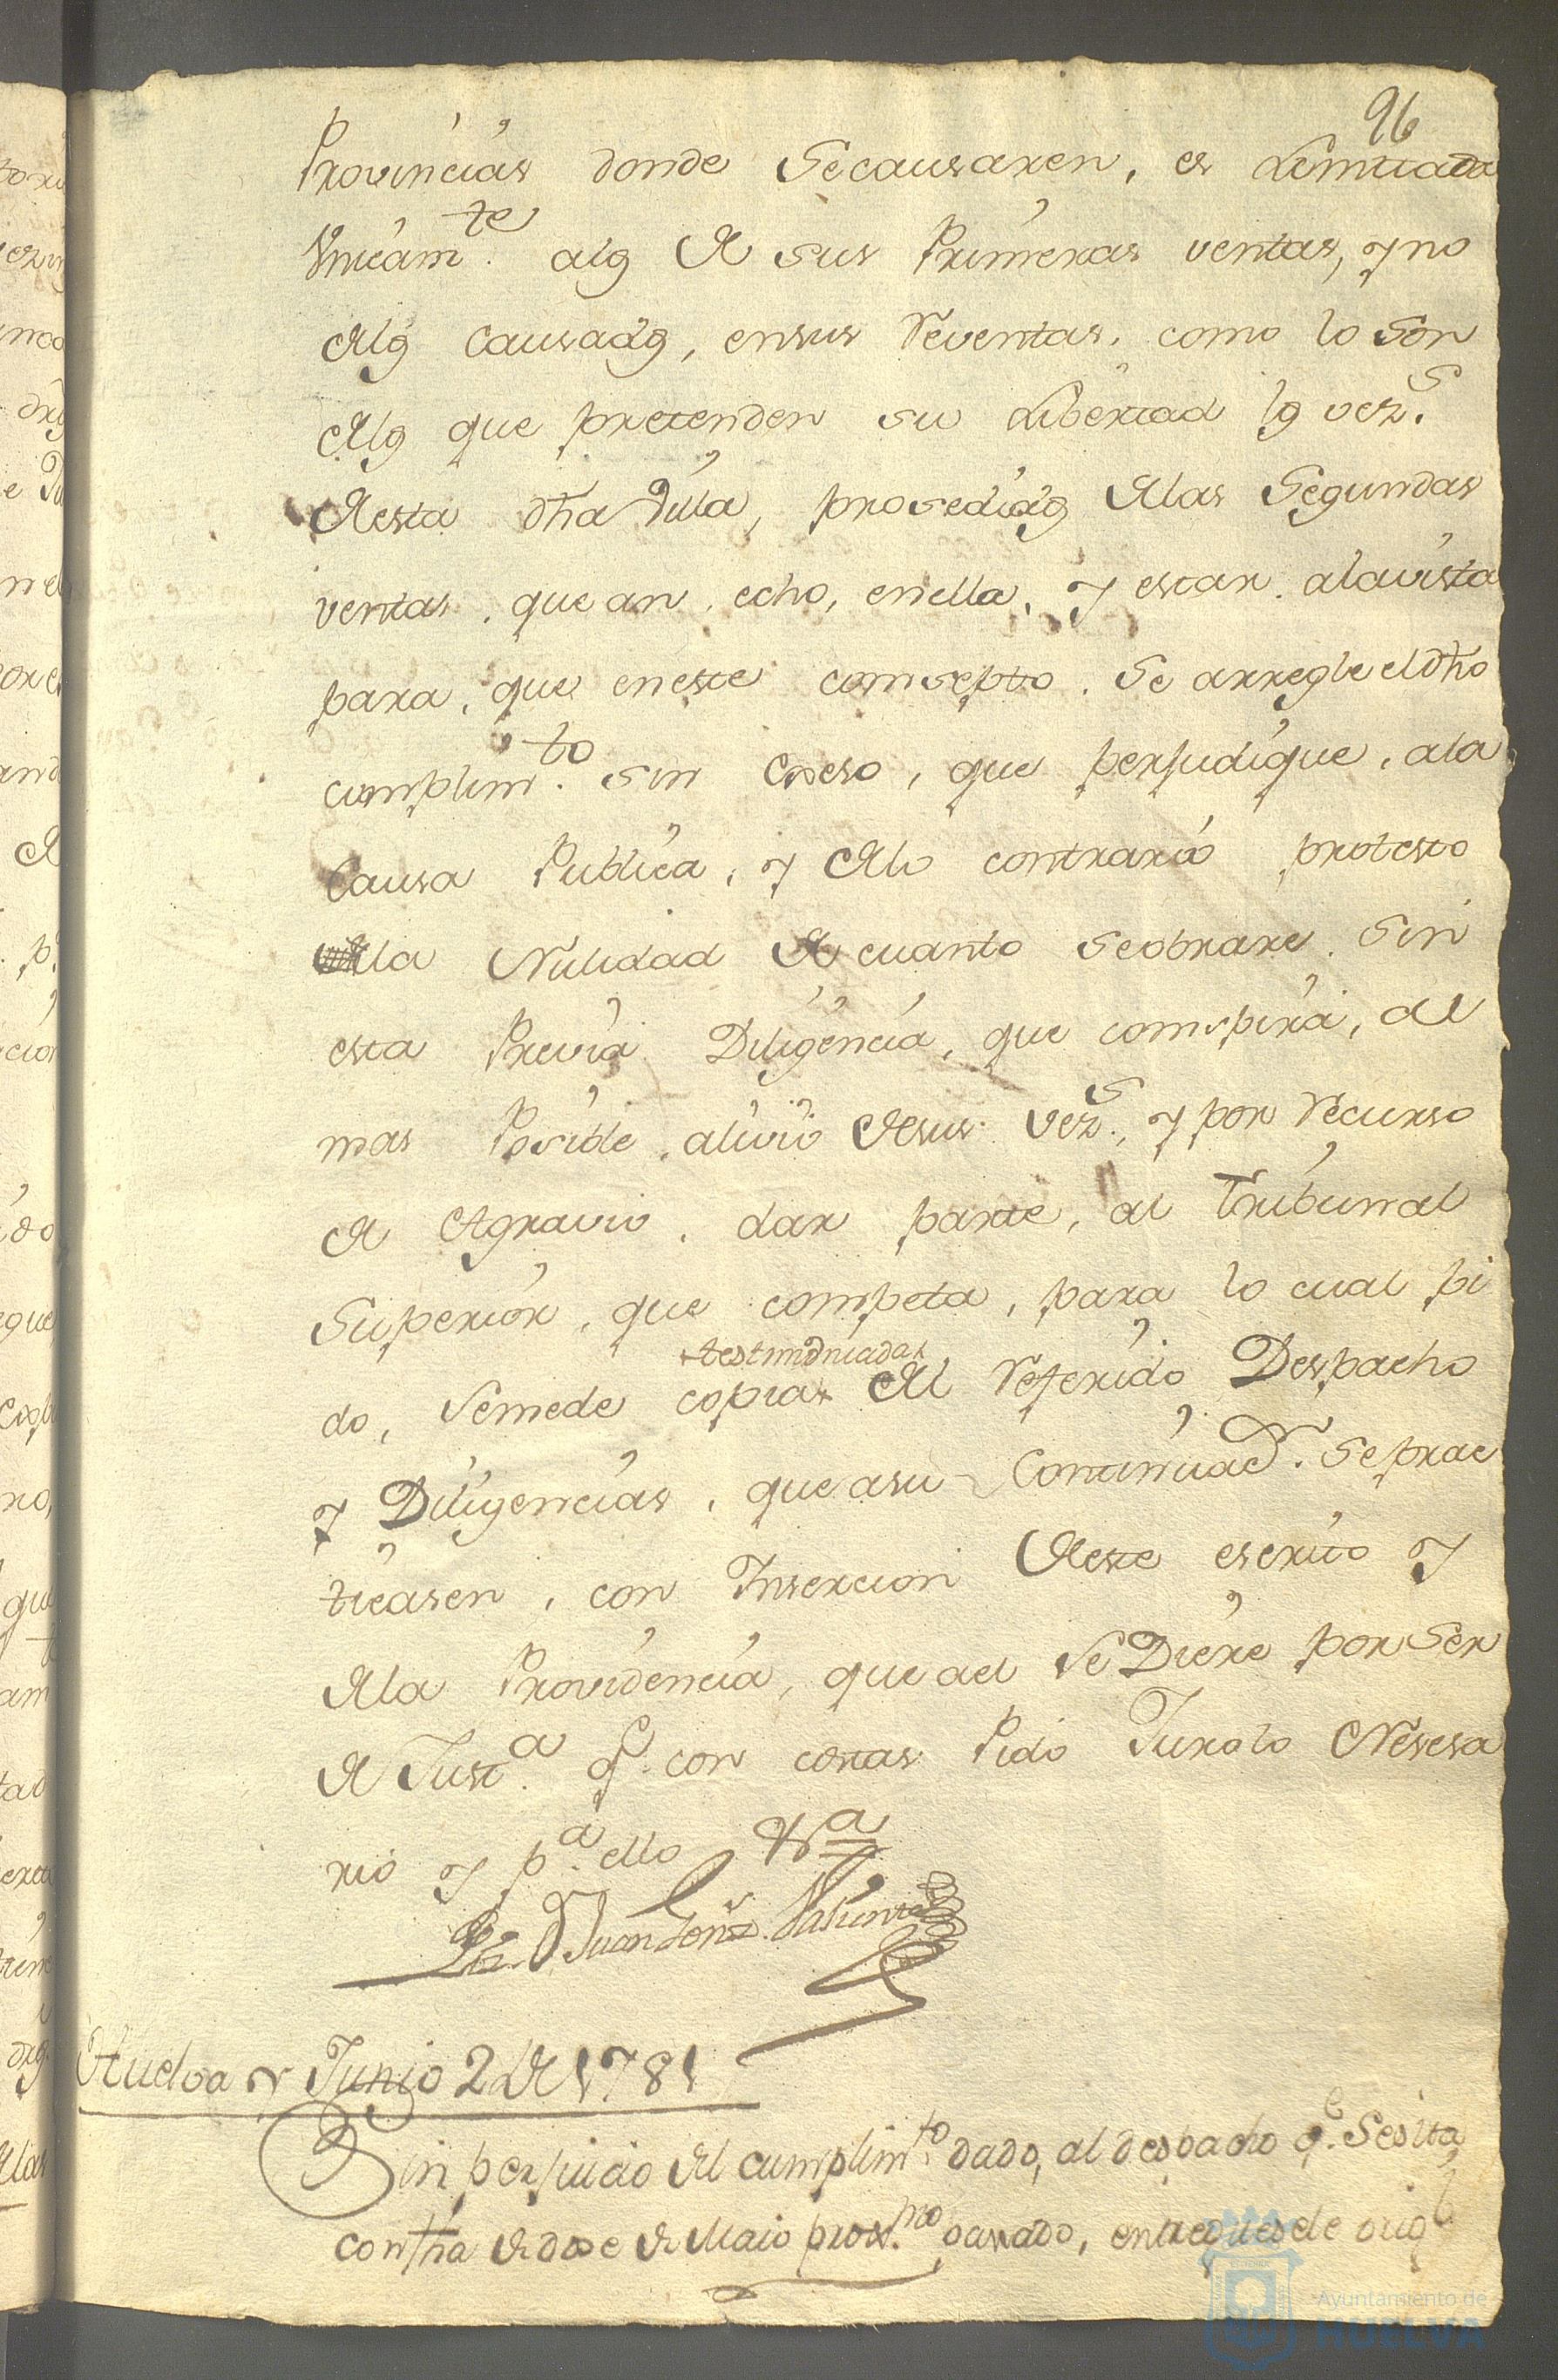 96
Provincias donde Secausaren, es Limitada
Unicamte. alos de sus Primeras ventas, y no
delos causados, ensus Reventas. como lo son
delos que pretenden su Livertad los vezs.
desta dha Villa, prosedidos delas Segundas
ventas. que an. echo, enella, y estar. alavista
para, que eneste comsepto. Se arregle eldho
cumplimto. sin Exseso, que perjudique, ala
Causa Publica, y delo contrario protesto
dela Nulidad de cuanto seobrare. Sin
esta Previa Diligencia, que comspira, al
mas Posible. alivio desus vezs., y por Recurso
de Agravio. dar parte, al Tribunal
Superior, que competa, para lo cual pi
do, Semede copia testimoniada del Referido Despacho
y Diligencias, que asu Continuacn. Seprac
ticasen, con Insercion deste escrito y
dela Providencia, que ael Se Diere por Ser
de Justa. qe. con costas Pido Jurolo Nesesa
rio y pa. ello &a
Lic. Dn Juan
Huelva y Junio 2 de 1781
Sin perjuicio del cumplimto. dado, al despacho qe. Sesita,
con fha de dose de Maio proxmo. pasado, entreguesele origl
Ayuntamiento de
HUELVA